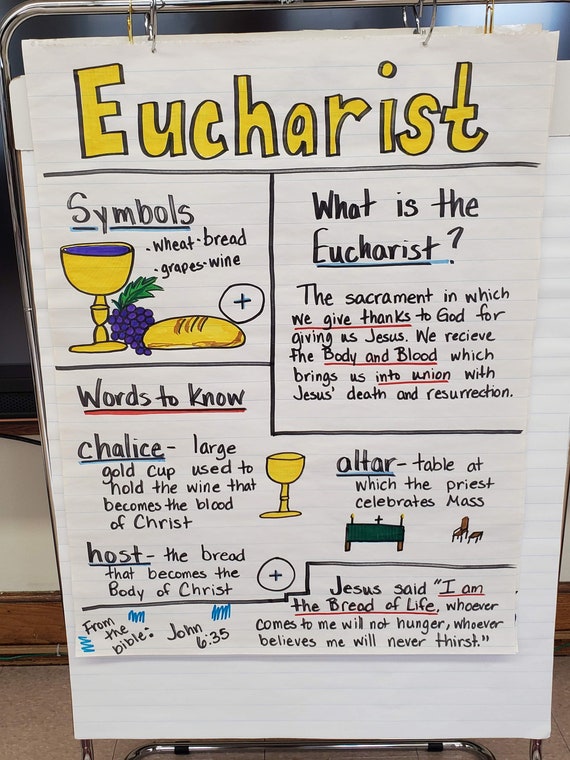 Eucharist
Symbols
• wheat - bread
• grapes - wine
What is the
Eucharist?
The sacrament in which
we give thanks to God for
giving us Jesus. We recieve
the Body and Blood which
brings us into union with
Jesus' death and resurrection.
Words to Know
chalice - large
gold cup used to
hold the wine that
becomes the blood
of Christ
altar - table at
which the priest
celebrates Mass
host - the bread
that becomes the
Body of Christ
From
the
bible:
John
6:35
Jesus said "I am
the Bread of Life, whoever
comes to me will not hunger, whoever
believes me will never thirst."